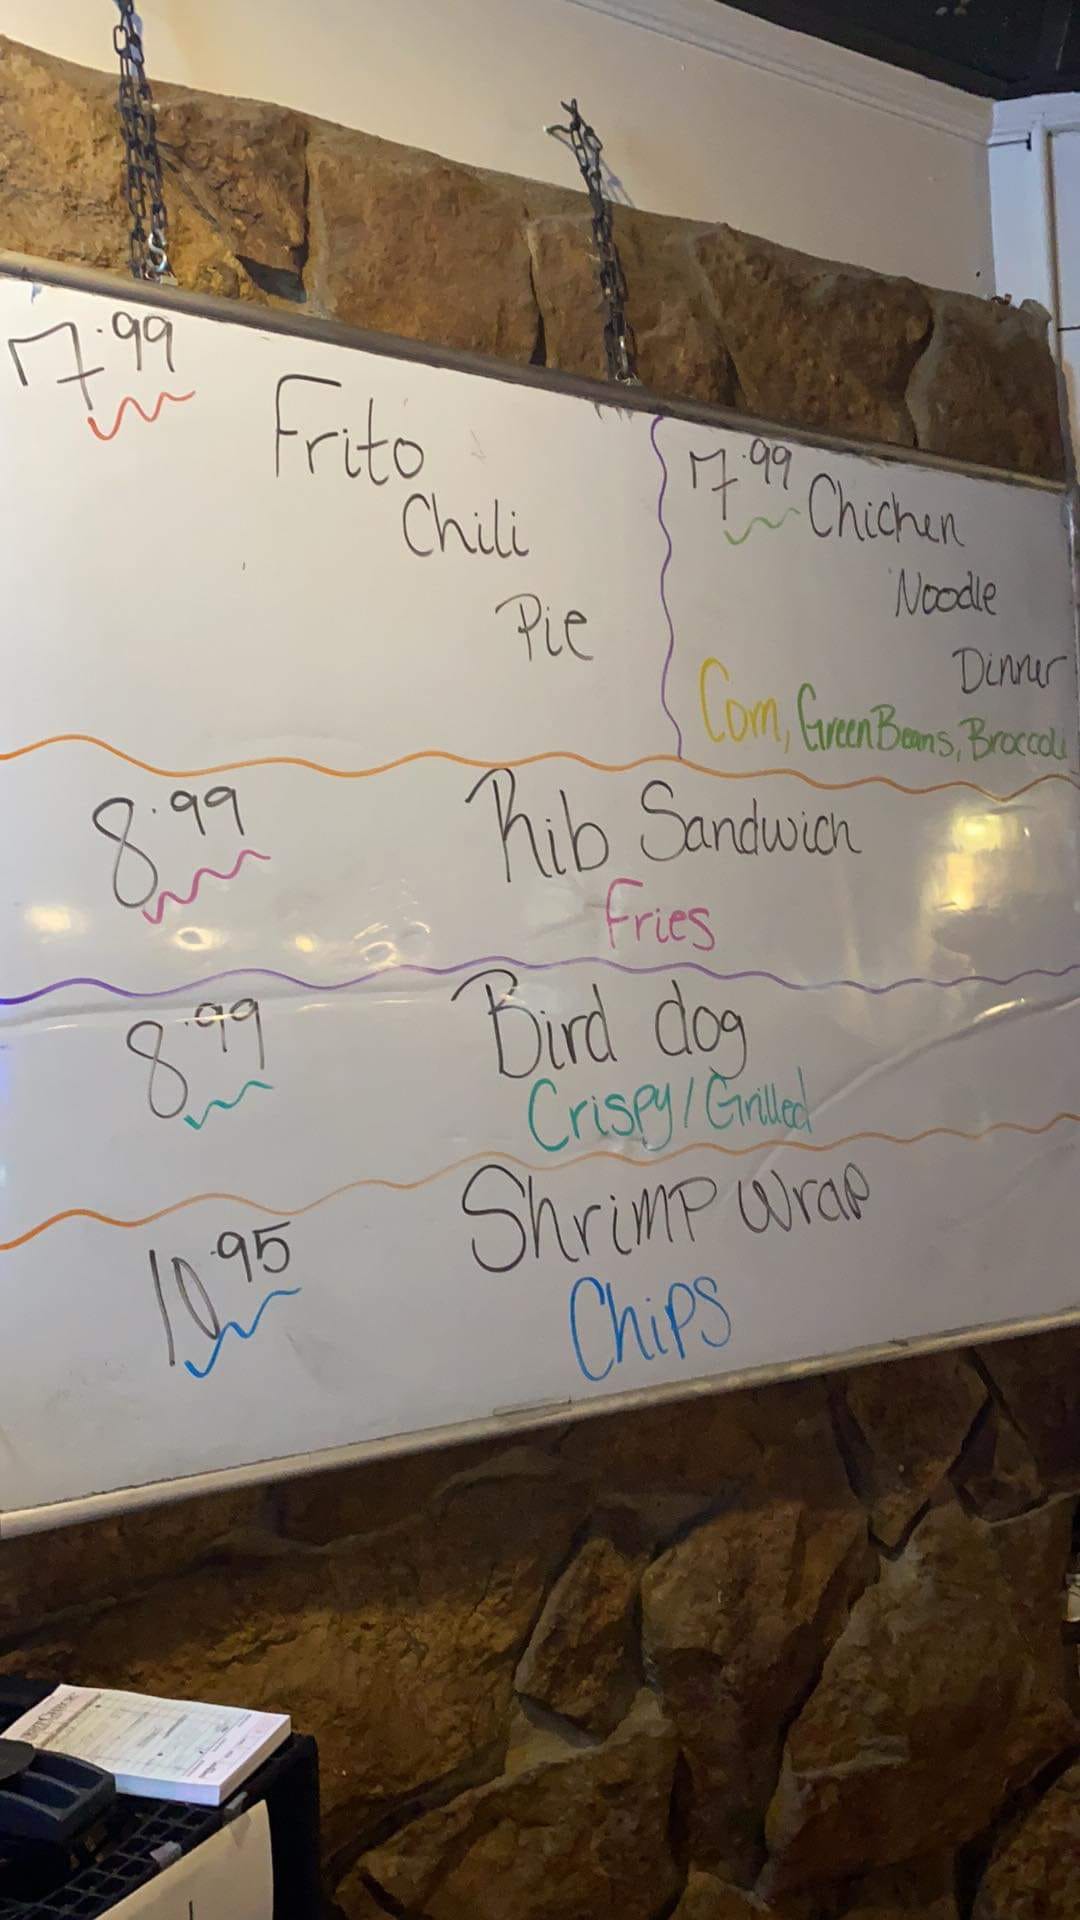 7.99
Frito
Chili
Pie
7.99 Chicken
Noodle
Dinner
Corn, Green Beans, Broccoli
8.99 Rib Sandwich
Fries
8.99 Bird dog
Crispy/Grilled
10.95 Shrimp wrap
Chips